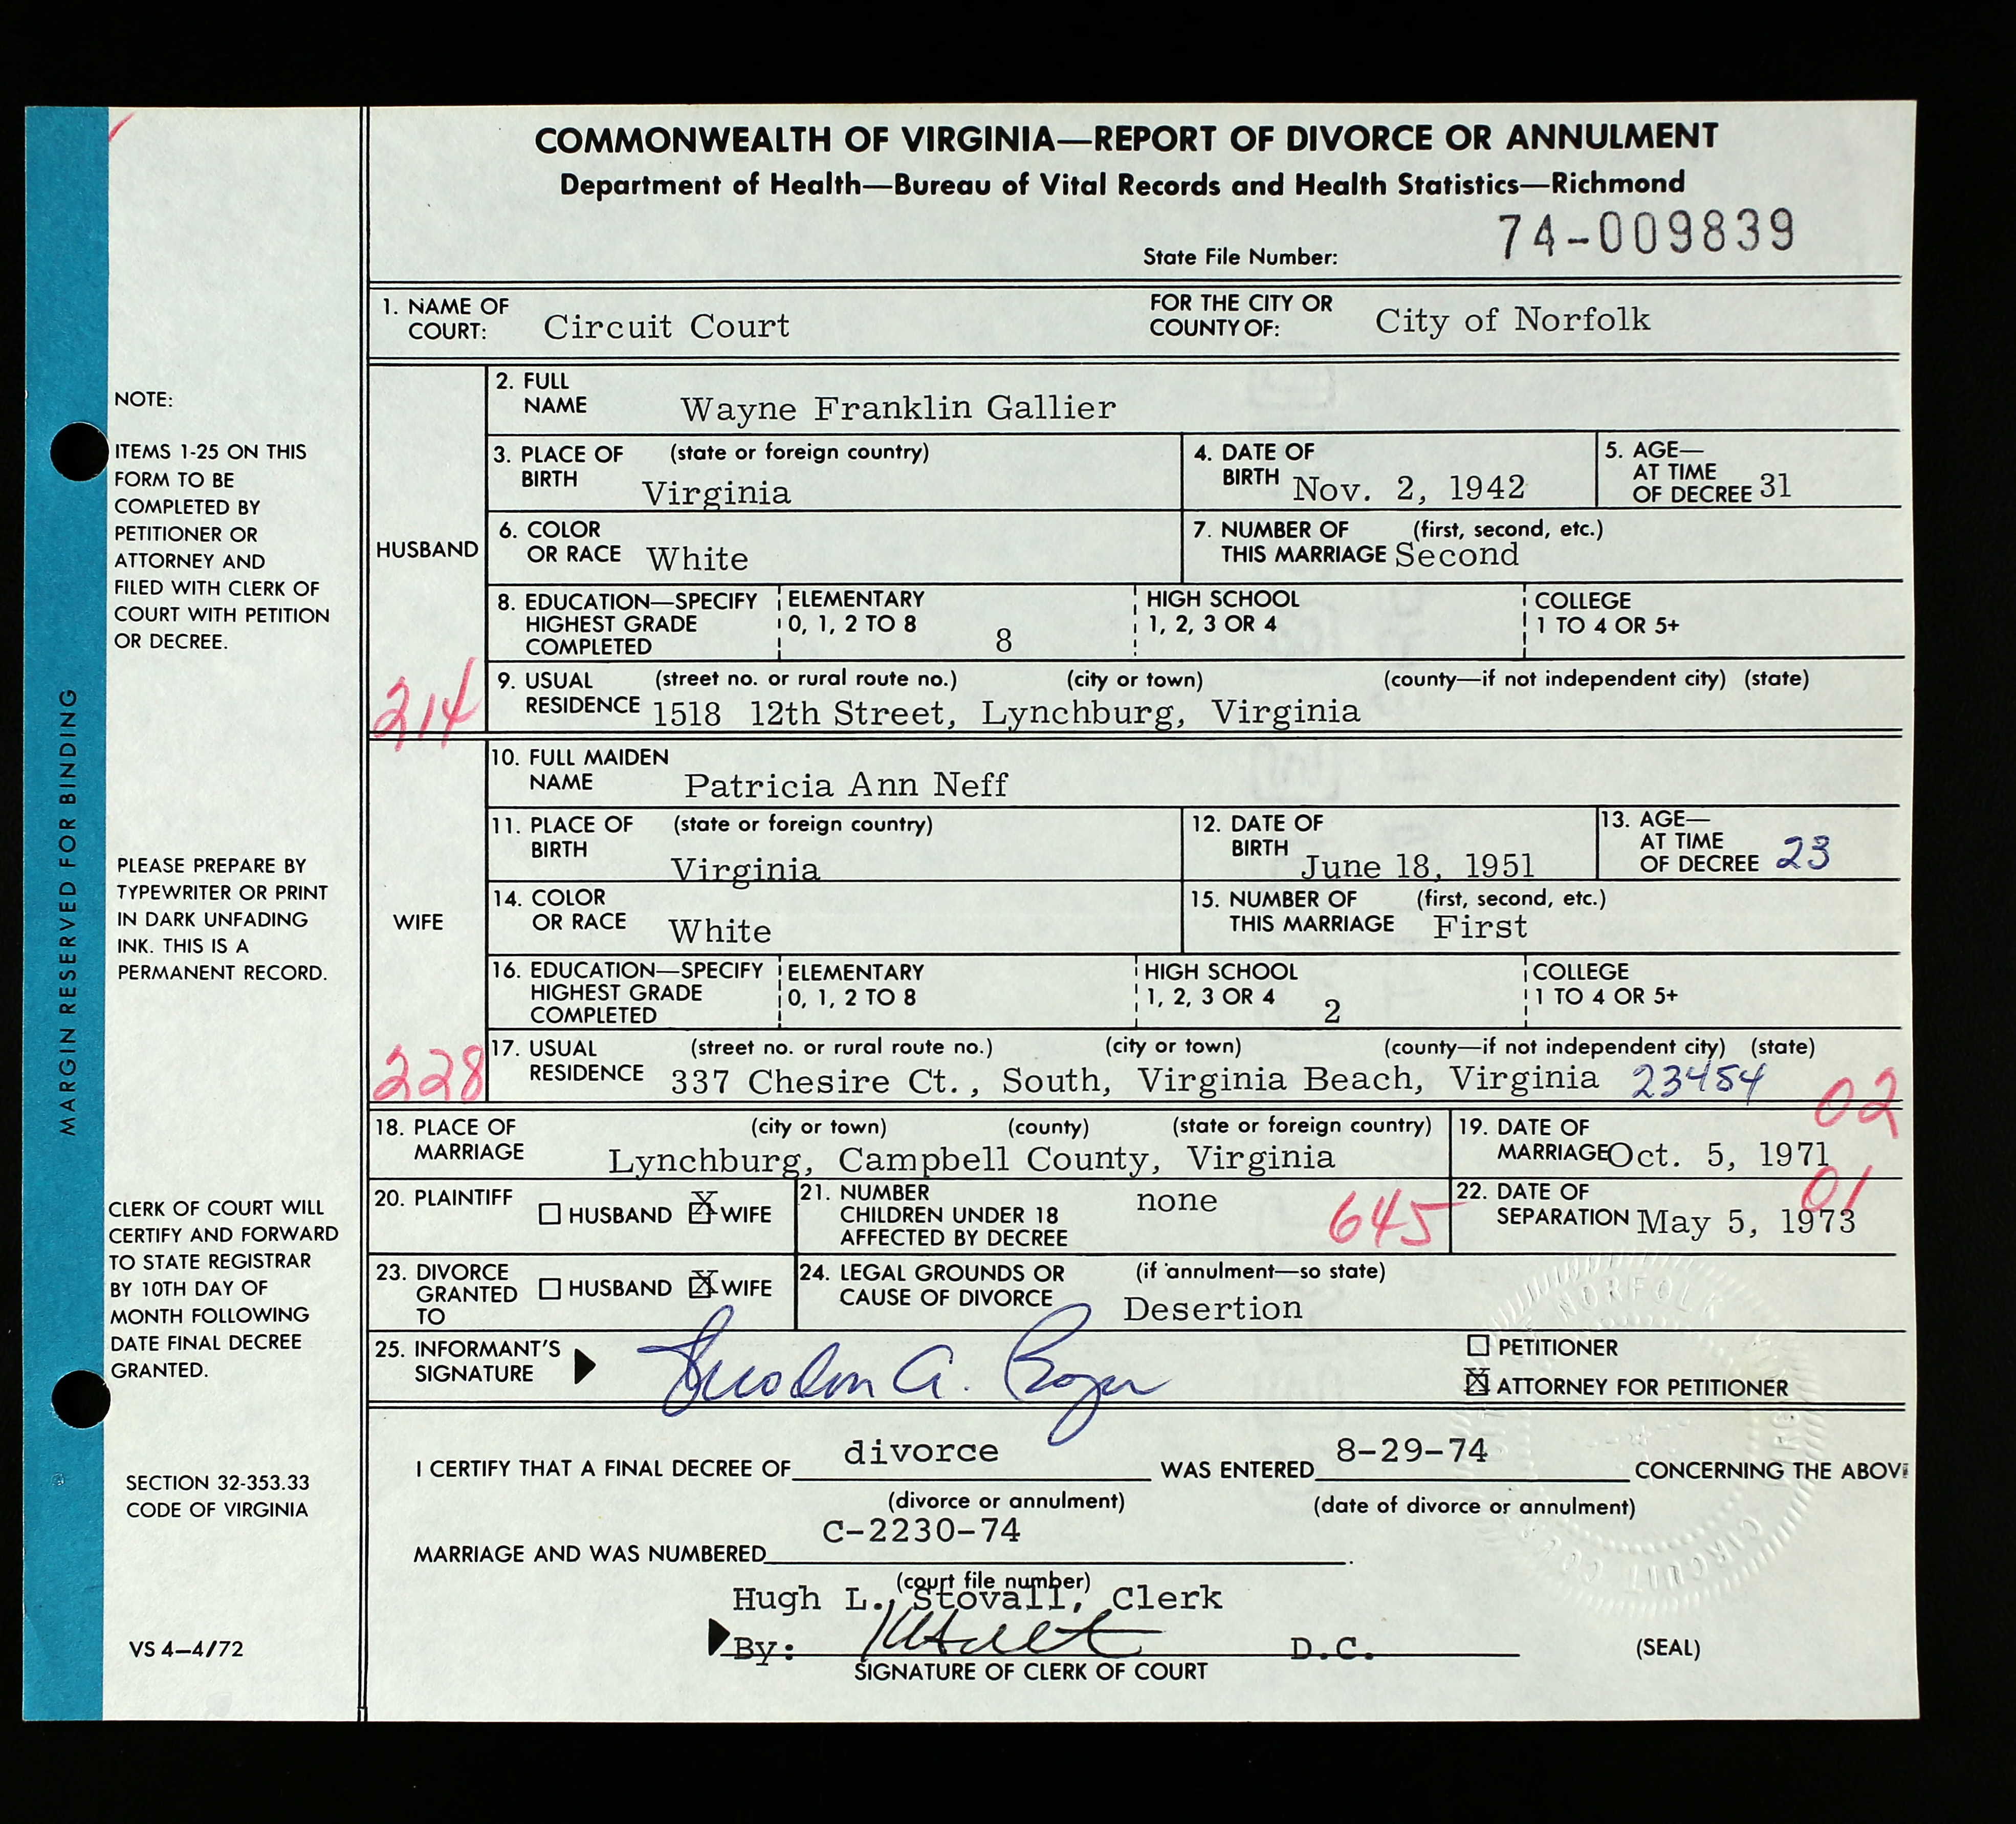 COMMONWEALTH OF VIRGINIA—REPORT OF DIVORCE OR ANNULMENT
Department of Health—Bureau of Vital Records and Health Statistics—Richmond
74-009839
State File Number:
1. NAME OF COURT: Circuit Court FOR THE CITY OR COUNTY OF: City of Norfolk
HUSBAND
2. FULL NAME Wayne Franklin Gallier
3. PLACE OF BIRTH (state or foreign country) Virginia
4. DATE OF BIRTH Nov. 2, 1942
5. AGE— AT TIME OF DECREE 31
6. COLOR OR RACE White
7. NUMBER OF THIS MARRIAGE (first, second, etc.) Second
8. EDUCATION—SPECIFY HIGHEST GRADE COMPLETED
ELEMENTARY 0, 1, 2 TO 8 8
HIGH SCHOOL 1, 2, 3 OR 4
COLLEGE 1 TO 4 OR 5+
214
9. USUAL RESIDENCE (street no. or rural route no.) (city or town) (county—if not independent city) (state)
1518 12th Street, Lynchburg, Virginia
WIFE
10. FULL MAIDEN NAME Patricia Ann Neff
11. PLACE OF BIRTH (state or foreign country) Virginia
12. DATE OF BIRTH June 18, 1951
13. AGE— AT TIME OF DECREE 23
14. COLOR OR RACE White
15. NUMBER OF THIS MARRIAGE (first, second, etc.) First
16. EDUCATION—SPECIFY HIGHEST GRADE COMPLETED
ELEMENTARY 0, 1, 2 TO 8
HIGH SCHOOL 1, 2, 3 OR 4 2
COLLEGE 1 TO 4 OR 5+
228
17. USUAL RESIDENCE (street no. or rural route no.) (city or town) (county—if not independent city) (state)
337 Chesire Ct., South, Virginia Beach, Virginia 23454
02
18. PLACE OF MARRIAGE (city or town) (county) (state or foreign country)
Lynchburg, Campbell County, Virginia
19. DATE OF MARRIAGE Oct. 5, 1971
01
20. PLAINTIFF HUSBAND X WIFE
21. NUMBER CHILDREN UNDER 18 AFFECTED BY DECREE none
645
22. DATE OF SEPARATION May 5, 1973
23. DIVORCE GRANTED TO HUSBAND X WIFE
24. LEGAL GROUNDS OR CAUSE OF DIVORCE (if annulment—so state) Desertion
25. INFORMANT'S SIGNATURE
PETITIONER
X ATTORNEY FOR PETITIONER
I CERTIFY THAT A FINAL DECREE OF divorce WAS ENTERED 8-29-74 CONCERNING THE ABOVE
(divorce or annulment) (date of divorce or annulment)
MARRIAGE AND WAS NUMBERED C-2230-74.
(court file number)
Hugh L. Stovall, Clerk
By: D.C.
SIGNATURE OF CLERK OF COURT
(SEAL)
NORFOLK
CIRCUIT COURT
MARGIN RESERVED FOR BINDING
NOTE:
ITEMS 1-25 ON THIS
FORM TO BE
COMPLETED BY
PETITIONER OR
ATTORNEY AND
FILED WITH CLERK OF
COURT WITH PETITION
OR DECREE.
PLEASE PREPARE BY
TYPEWRITER OR PRINT
IN DARK UNFADING
INK. THIS IS A
PERMANENT RECORD.
CLERK OF COURT WILL
CERTIFY AND FORWARD
TO STATE REGISTRAR
BY 10TH DAY OF
MONTH FOLLOWING
DATE FINAL DECREE
GRANTED.
SECTION 32-353.33
CODE OF VIRGINIA
VS 4–4/72